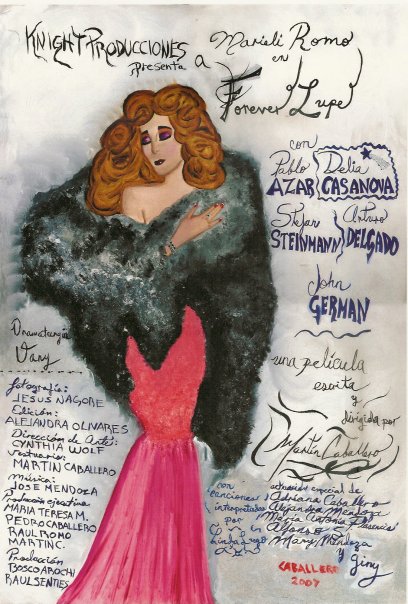 KNIGHT PRODUCCIONES
Presenta A
Marieli Romo
en
Forever Lupe
con
Pablo
AZAR
Delia
CASANOVA
Stefan
STEINMANN
Arturo
DELGADO
John
GERMAN
una película
escrita
y
dirigida por
Martín Caballero
Dramaturgia
Vany
fotografía:
JESUS NAGORE
Edición:
ALEJANDRA OLIVARES
Dirección de Arte:
CYNTHIA WOLF
vestuario:
MARTIN CABALLERO
Música:
JOSE MENDOZA
Producción ejecutiva
MARIA TERESA M.
PEDRO CABALLERO
RAUL ROMO
MARTIN C.
Producción
BOSCO AROCHI
RAUL SENTIES
con
canciones
interpretadas
por
actuación especial de
Adriana Caballero
Alejandra Mendoza
María Antonia
Alonso
Mary Mendoza
y Giny
CABALLERO
2007